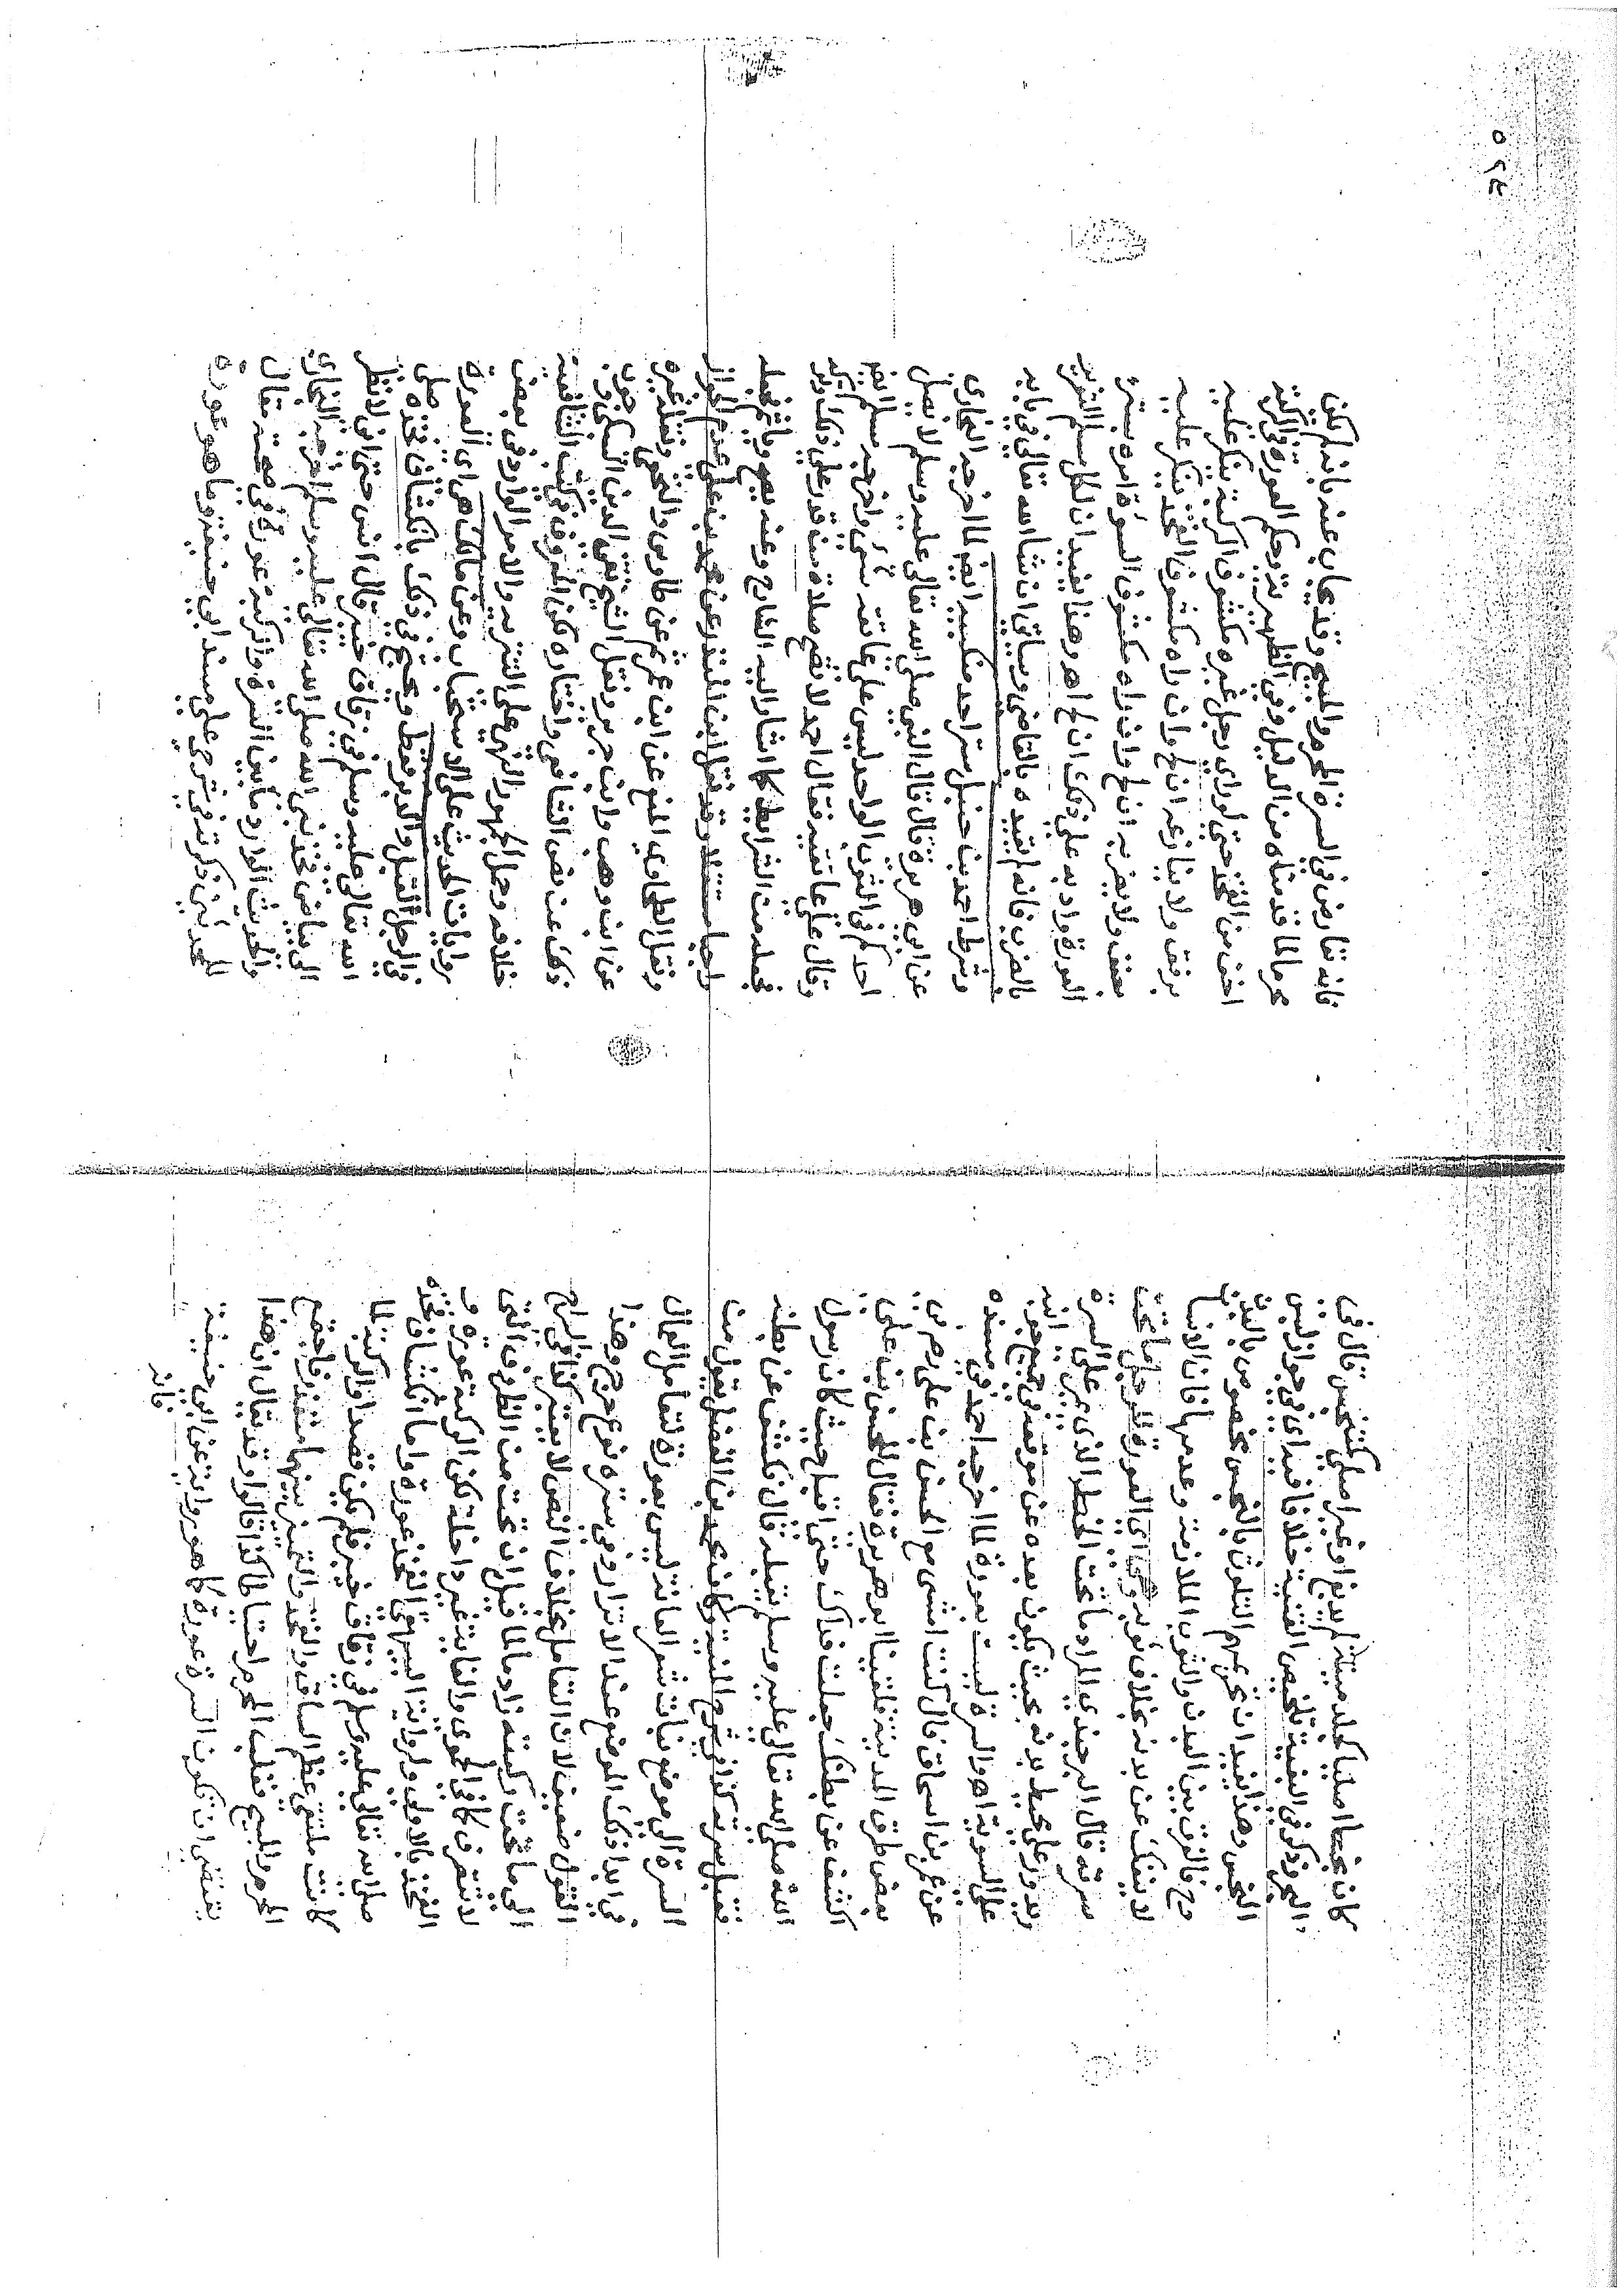 كان نجسا اصليا كجلد ميتة لم يدبغ او غير اصلي كمتنجس قال في
البحر وذكر في البغية تلخيص القنية خلافا فيه اي في جواز لبس
النجس وهذا يفيد ان تحريمهم التلوث بالنجس مخصوص بالبدن
وح فالفرق بين البدن والثوب الملازمة وعدمها فان الانسا
لا ينفك عن بدنه بخلاف ثوبه وهي اي العورة للرجل ما تحت
سرته قال البرجندي المراد ما تحت الخط الذي يمر على السرة
ويدور على محيط بدنه بحيث يكون بعده عن موقعه في جميع جوانبه
على السوية اهـ والسرة ليست بعورة لما اخرجه احمد في مسنده
عن عمير بن اسحاق قال كنت امشي مع الحسن بن علي رض في
بعض طرق المدينة فلقينا ابو هريرة فقال للحسن بن علي
اكشف عن بطنك جعلت فداك حتى اقبل حيث كان رسول
الله صلى الله تعالى عليه وسلم يقبله قال فكشف عن بطنه
فقبل سرته كذا في شرح المنية وكان محمد بن الفضل يقول من
السرة الى موضع نبات شعر العانة ليس بعورة لتعامل العمال
في ابدا ذلك الموضع عند الاتزار وفي ستره نوع حرج وهذا
القول ضعيف لان التعامل بخلاف النص لا يعتبر كذا في السراج
الى ما تحت ركبته زاد ما لما قيل ان تحت من الظروف التي
لا تتصرف كما في الحموي والغاية غير داخلة لكن الركبة عورة و
الفخذ بالاولى ولرواية البيهقي الفخذ عورة واما انكشاف فخذه
صلى الله تعالى عليه وسلم في زقاق خيبر فلم يكن قصدا والركبة لما
كانت ملتقى عظم الساق والفخذ والتمييز بينهما متعذر فاجتمع
المحرم والمبيح فغلب المحرم احتياطا كذا قالوا وقد يقال ان هذا
يقتضي ان تكون السرة عورة كما هو رواية عن ابي حنيفة
فانه
فانه تعارض في السرة المحرم والمبيح وقد يجاب عنه بانه لم يكن
محرما لما قدمناه من الدليل وفي الظهيرية وحكم العورة في الركبة
اخف من الفخذ حتى لو راى رجل غيره مكشوف الركبة ينكر عليه
برفق ولا ينازعه ان لج وان راه مكشوف الفخذ ينكر عليه
بعنف ولا يضربه ان لج وان راه مكشوف السوأة امره بستر
العورة وادبه على ذلك ان لج اهـ وهذا يفيد ان لكل مسلم التعزير
بالضرب فانه لم يقيده بالقاضي وسياتي ان شا الله تعالى في بابه
وشرط احمد بن حنبل ستر احد منكبيه ايضا لما اخرجه البخاري
عن ابي هريرة قال قال النبي صلى الله تعالى عليه وسلم لا يصلي
احدكم في الثوب الواحد ليس على عاتقه شي واخرجه مسلم ايضا
وقال على عاتقيه فقال احمد لا تصح صلاة من قدر على ذلك وتركه
فجعله من الشرايط كما اشار اليه الشارح وعنه يصح وياثم فجعله
واجبا مستقلا وقد نقل ابن المنذر عن محمد بن علي عدم الجواز
ونقل الطحاوي المنع عن ابن عمر ثم عن طاوس والنخعي ونقله غيره
عن ابن وهب وابن جرير ونقل الشيخ تقي الدين السبكي وجوب
ذلك عن نص الشافعي واختاره لكن المعروف في كتب الشافعية
خلافه وحمل الجمهور النهي على التنزيه والامر الوارد في بعض
روايات الحديث على الاستحباب وعن مالك هي اي العورة
في الرجل القبل والدبر فقط ويحتج في ذلك بانكشاف فخذه صلى
الله تعالى عليه وسلم في زقاق خيبر قال انس حتى اني لانظر
الى بياض فخذ نبي الله صلى الله تعالى عليه وسلم اخرجه البخاري
والحديث الوارد ما بين السرة والركبة عورة في صحته مقال
للمحدثين ذكرته في شرحي على مسند ابي حنيفة وما هو عورة